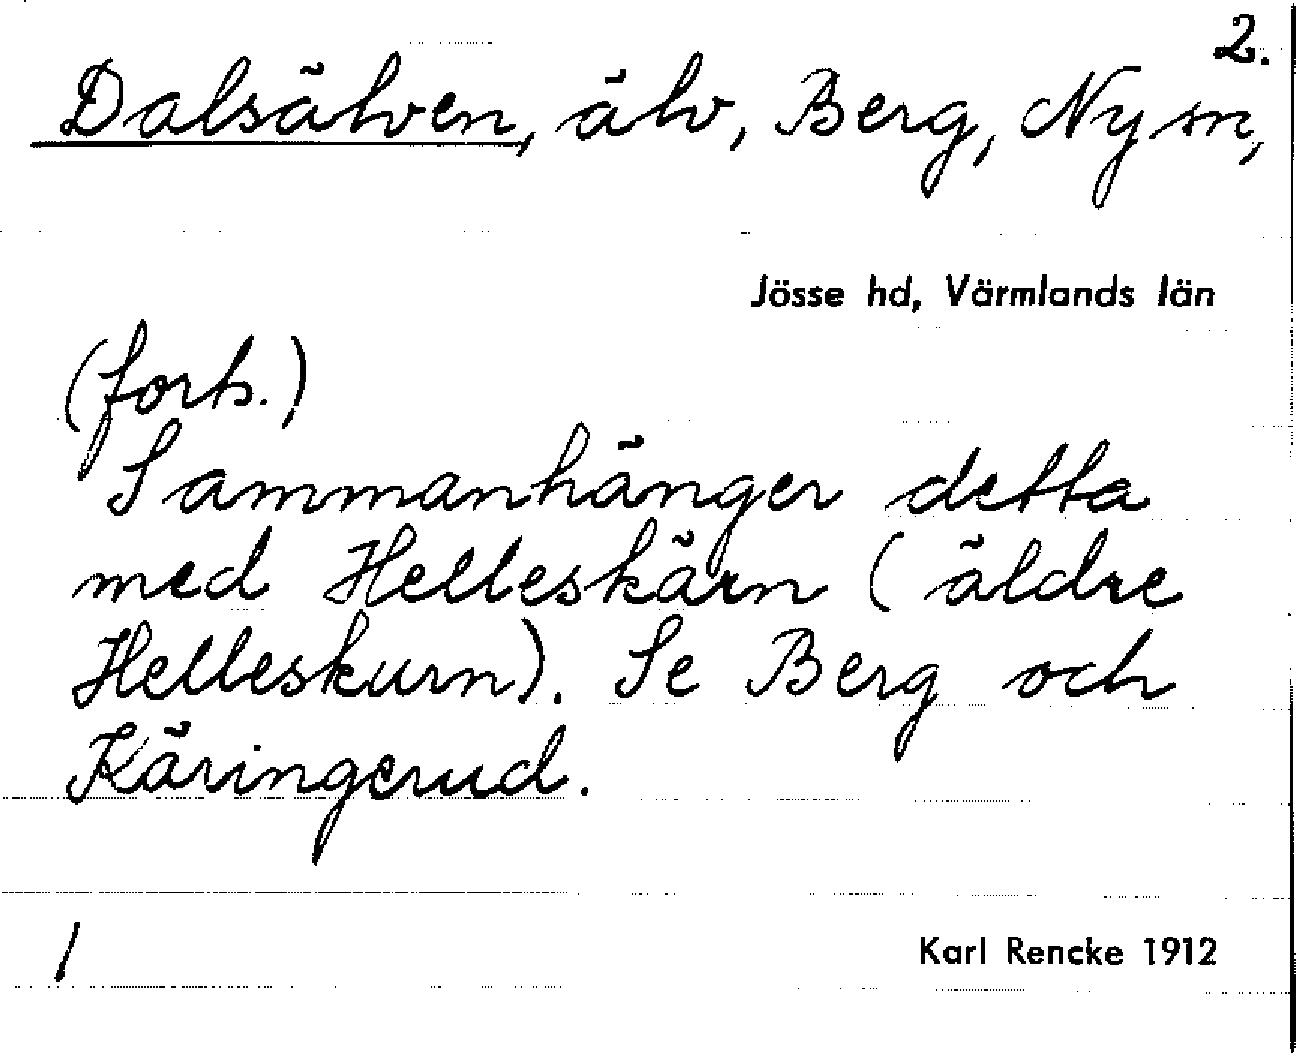 2.
Dalsälven, älv, Berg, Ny sn,
Jösse hd, Värmlands län
(forts.)
Sammanhänger detta
med Helleskärn (äldre
Helleskurn). Se Berg och
Käringerud.
1
Karl Rencke 1912